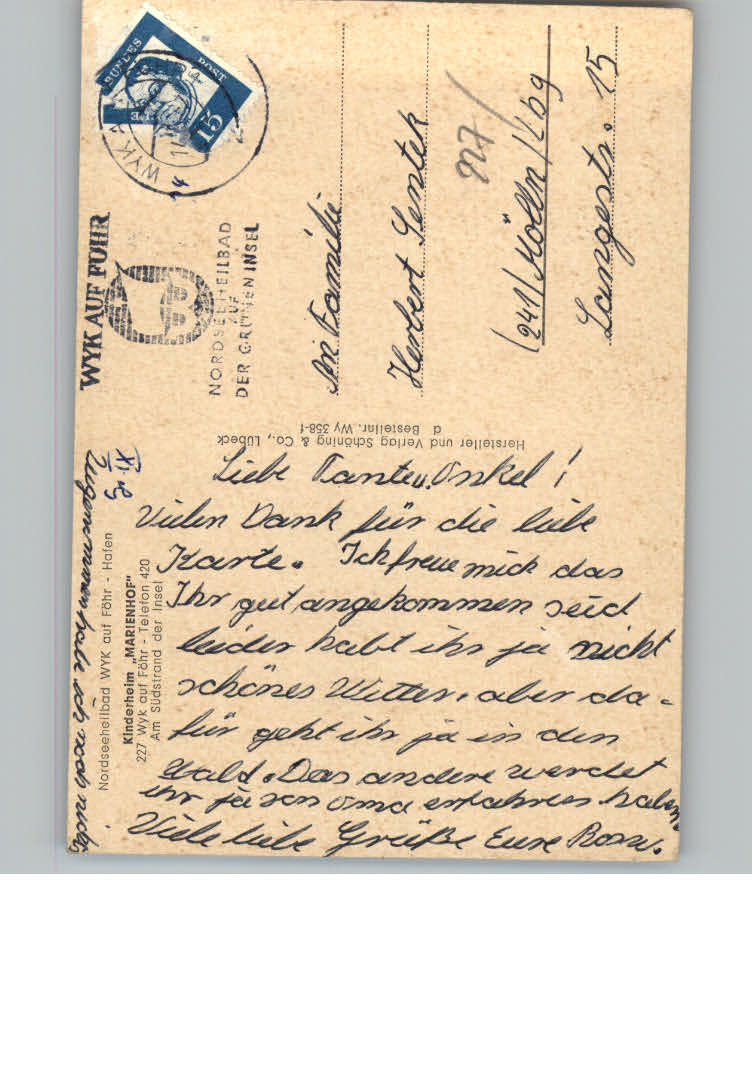 Liebe Tante u. Onkel!
Vielen Dank für die liebe
Karte. Ich freue mich das
Ihr gut angekommen seid
leider habt ihr ja nicht
schönes Wetter, aber da=
für geht ihr ja in den
Wald. Das andere werdet
ihr ja von Oma erfahren haben.
Viele liebe Grüße Eure Rosw.
Zugenommen habe ich noch nicht
Nordseeheilbad WYK auf Föhr - Hafen
Kinderheim „MARIENHOF"
227 Wyk auf Föhr - Telefon 420
Am Südstrand der Insel
Hersteller und Verlag Schöning & Co., Lübeck
d Bestellnr. Wy 358-1
WYK AUF FÖHR
NORDSEEHEILBAD
AUF
DER GRÜNEN INSEL
BUNDES POST
15
WYK A
An Familie
Herbert Sentek
227
(241) Mölln / Lbg
Langestr. 15